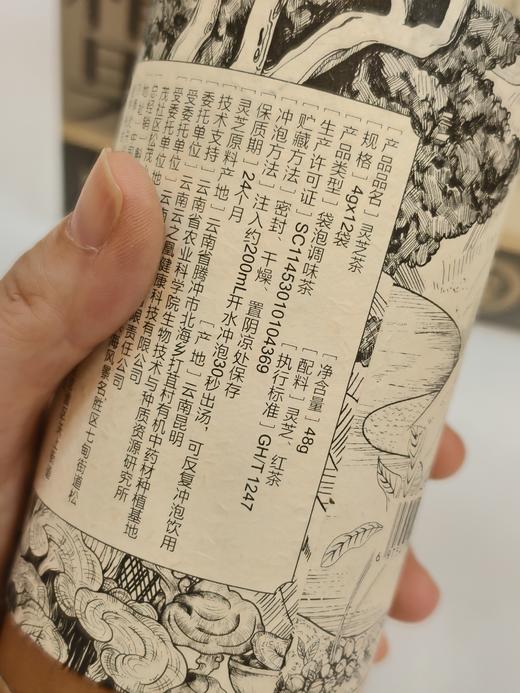 ［产品品名］灵芝茶
［规格］4gx12袋 ［净含量］48g
［产品类型］袋泡调味茶 ［配料］灵芝、红茶
［生产许可证］SC11453010104369 ［执行标准］GH/T 1247
［贮藏方法］密封、干燥、置阴凉处保存
［冲泡方法］注入约200mL开水冲泡30秒出汤，可反复冲泡饮用
［保质期］24个月 ［产地］云南昆明
［灵芝原料产地］云南省腾冲市北海乡打苴村有机中药材种植基地
［技术支持］云南省农业科学院生物技术与种质资源研究所
［委托单位］云南云之凰健康科技有限公司
［受委托单位］
限责任公司
海风景名胜区七甸街道松
茂社区松茂